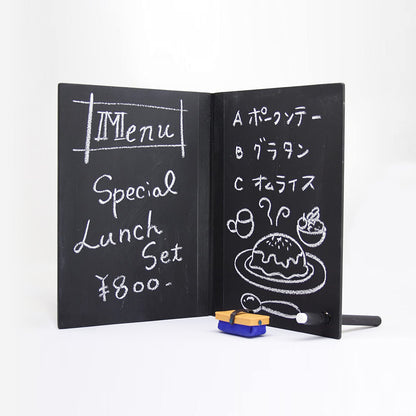 Menu
Special
Lunch
Set
¥800-
A ポークソテー
B グラタン
C オムライス